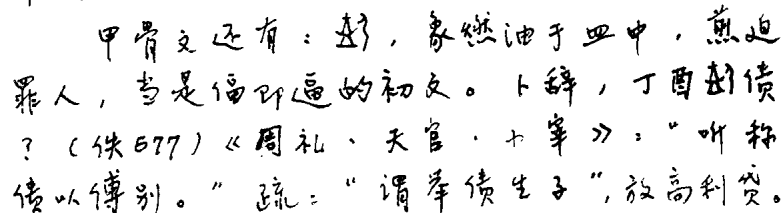 甲骨文还有：，象燃油于皿中，薰迫
罪人，当是偪即逼的初文。卜辞，丁酉债
？（佚577）《周礼·天官·小宰》：“听称
债以傅别。”疏：“谓举债生子”，放高利贷。